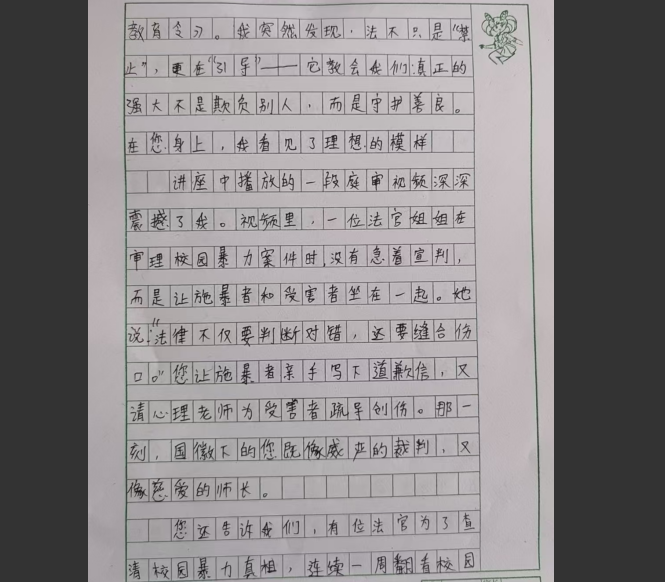 教育令》。我突然发现，法不只是“禁
止”，更在“引导”——它教会我们：真正的
强大不是欺负别人，而是守护善良。
在您身上，我看见了理想的模样
讲座中播放的一段庭审视频深深
震撼了我。视频里，一位法官姐姐在
审理校园暴力案件时，没有急着宣判，
而是让施暴者和受害者坐在一起。她
说：“法律不仅要判断对错，还要缝合伤
口。”您让施暴者亲手写下道歉信，又
请心理老师为受害者疏导创伤。那一
刻，国徽下的您既像威严的裁判，又
像慈爱的师长。
您还告诉我们，有位法官为了查
清校园暴力真相，连续一周翻看校园